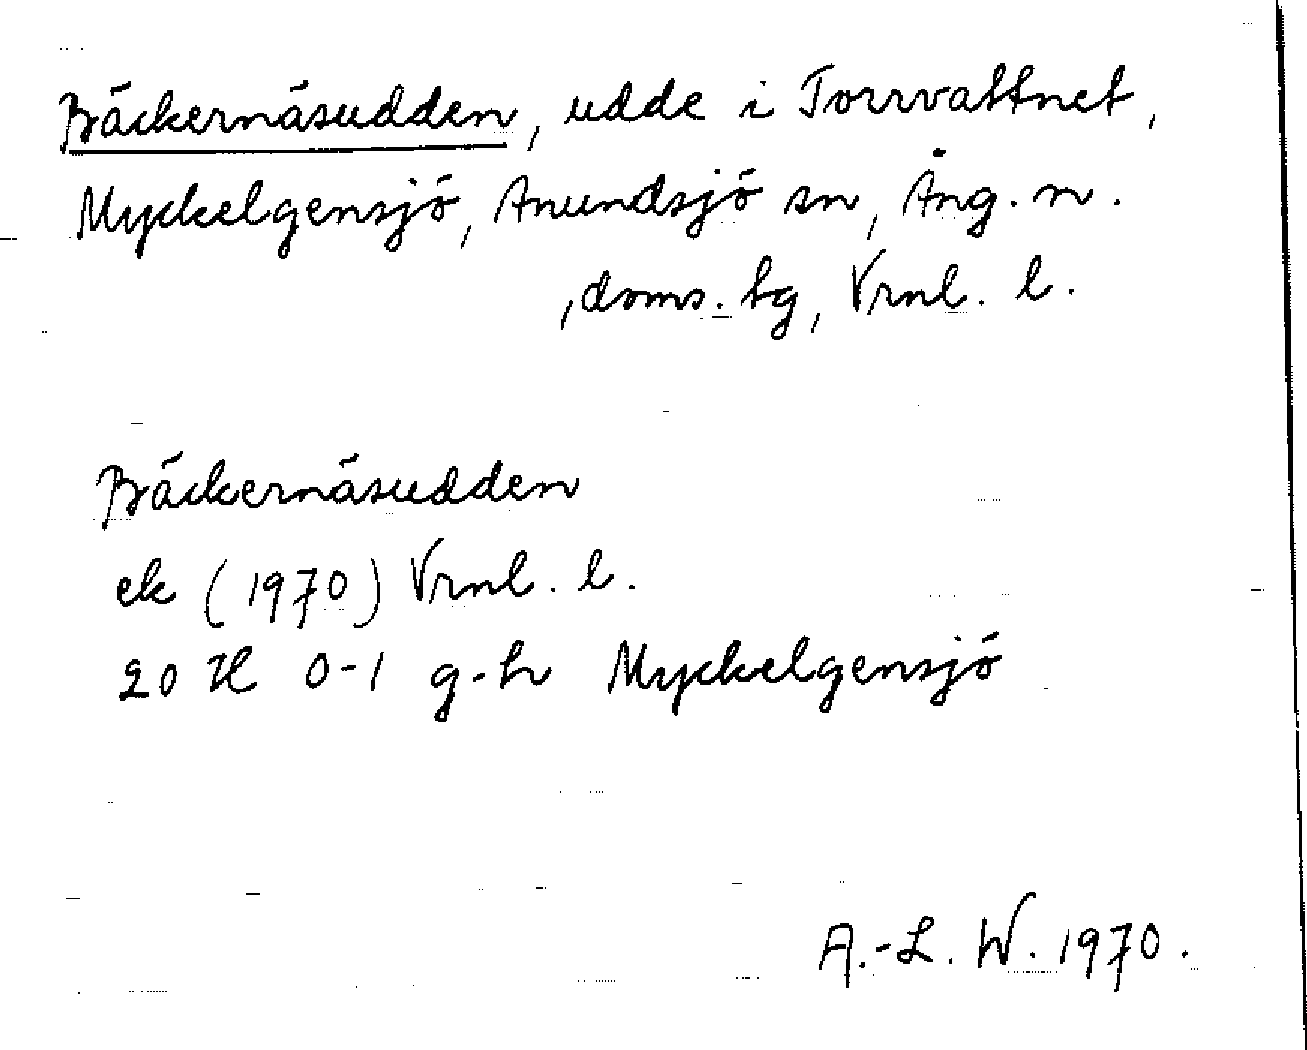 Bäckernäsudden, udde i Torrvattnet,
Myckelgensjö, Anundsjö sn, Ång. n.
, doms. tg, Vrnl. l.
Bäckernäsudden
ek (1970) Vrnl. l.
20 H 0-1 g-h Myckelgensjö
A.-L. W. 1970.